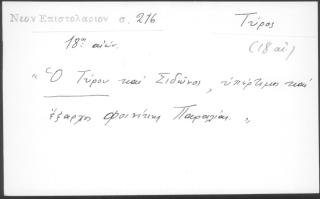 Νεον Επιστολαριον σ. 216
Τύρος
18ος αἰών.
(18 αἰ)
" Ὁ Τύρου καὶ Σιδῶνος, ὑπέρτιμος καὶ
ἔξαρχος Φοινίκης Παραλίας. "